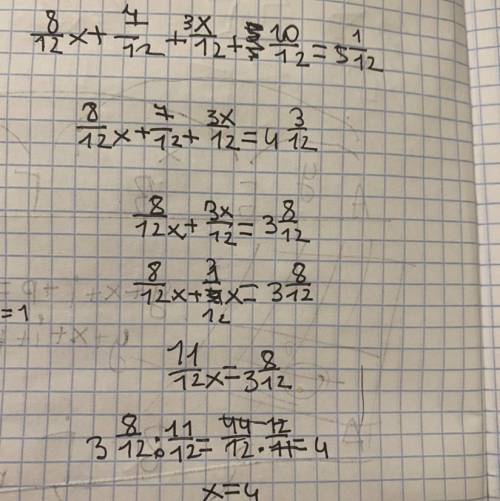 8/12 x + 7/12 + 3x/12 + 10/12 = 5 1/12
8/12 x + 7/12 + 3x/12 = 4 3/12
8/12 x + 3x/12 = 3 8/12
8/12 x + 3/12 x = 3 8/12
=1
11/12 x = 3 8/12
3 8/12 : 11/12 = 44·12/12·11 = 4
x=4